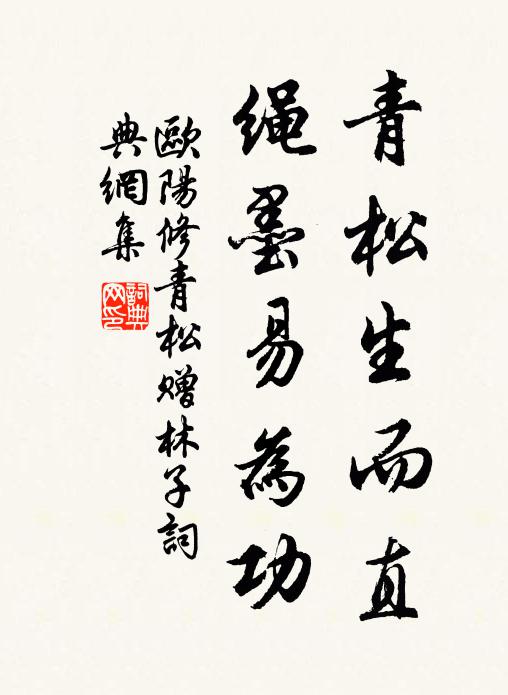 青松生而直
绳墨易為功
歐陽修青松赠林子詞
典網集
詞典网印